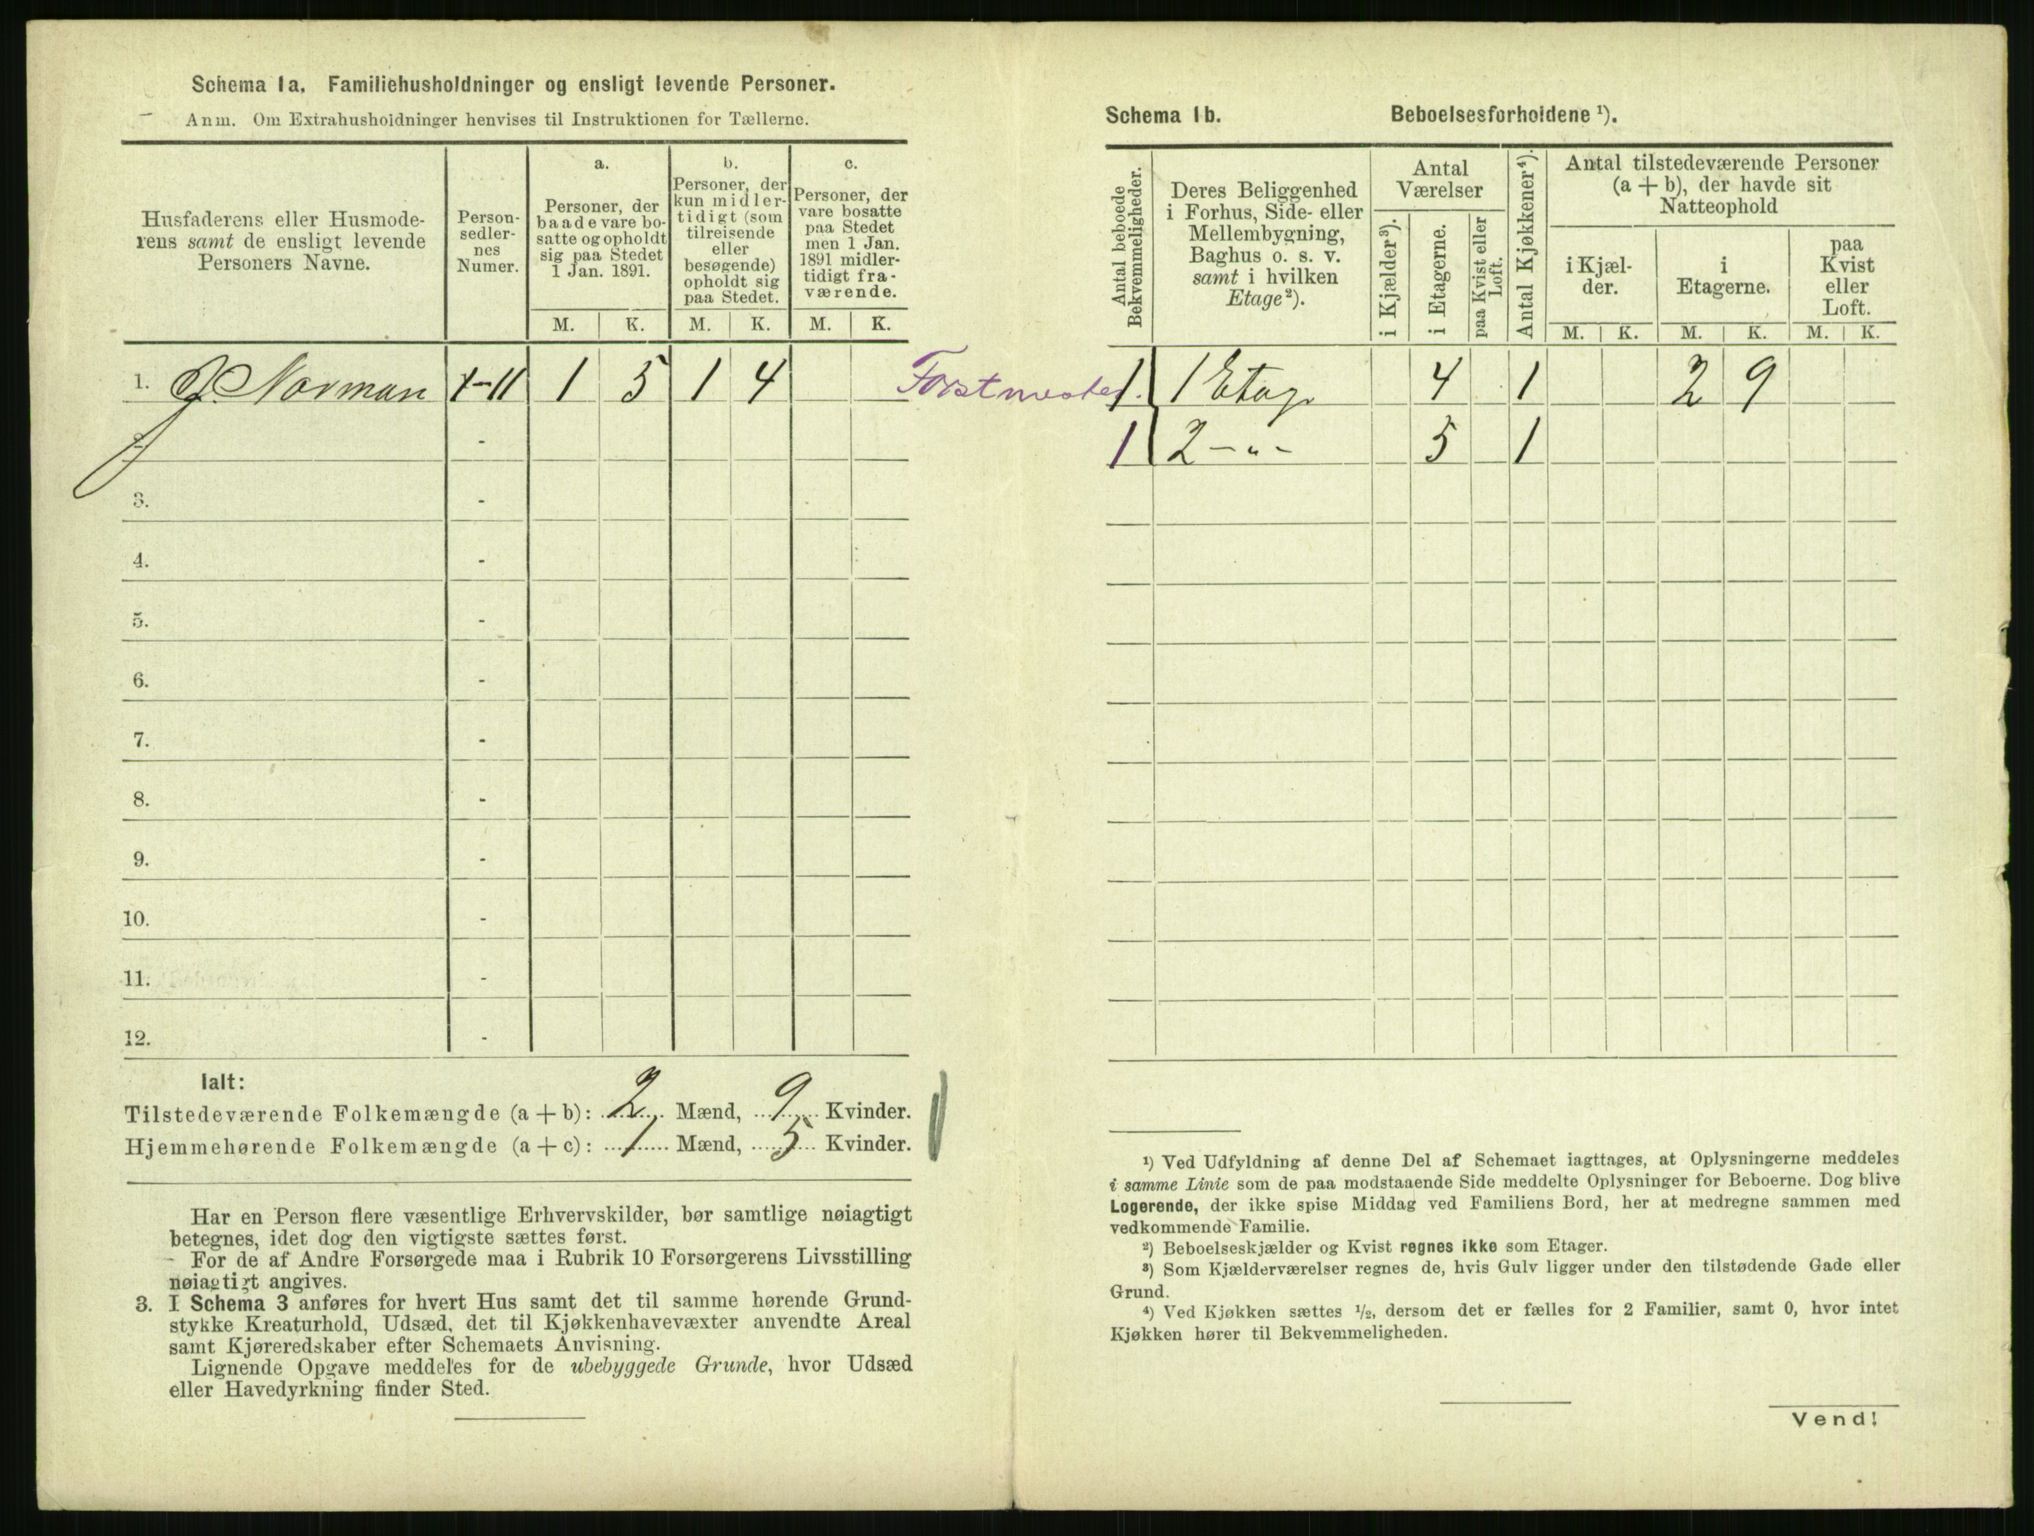 Schema 1a. Familiehusholdninger og ensligt levende Personer.
Anm. Om Extrahusholdninger henvises til Instruktionen for Tællerne.
Husfaderens eller Husmode-
rens samt de ensligt levende
Personers Navne.
Person-
sedler-
nes
Numer.
a.
Personer, der
baade vare bo-
satte og opholdt
sig paa Stedet
1 Jan. 1891.
b.
Personer, der
kun midler-
tidigt (som
tilreisende
eller
besøgende)
opholdt sig
paa Stedet.
c.
Personer, der
vare bosatte
paa Stedet
men 1 Jan.
1891 midler-
tidigt fra-
værende.
M. K. M. K. M. K.
1. J. Norman 1-11 1 5 1 4 Forstmester.
2. -
3. -
4. -
5. -
6. -
7. -
8. -
9. -
10. -
11. -
12. -
Ialt:
Tilstedeværende Folkemængde (a + b): 2 Mænd, 9 Kvinder.
Hjemmehørende Folkemængde (a + c): 1 Mænd, 5 Kvinder.
Har en Person flere væsentlige Erhvervskilder, bør samtlige nøiagtigt
betegnes, idet dog den vigtigste sættes først.
For de af Andre Forsørgede maa i Rubrik 10 Forsørgerens Livsstilling
nøiagtigt angives.
3. I Schema 3 anføres for hvert Hus samt det til samme hørende Grund-
stykke Kreaturhold, Udsæd, det til Kjøkkenhavevæxter anvendte Areal
samt Kjøreredskaber efter Schemaets Anvisning.
Lignende Opgave meddeles for de ubebyggede Grunde, hvor Udsæd
eller Havedyrkning finder Sted.
Schema 1b. Beboelsesforholdene ¹).
Antal beboede
Bekvemmeligheder.
Deres Beliggenhed
i Forhus, Side- eller
Mellembygning,
Baghus o. s. v.
samt i hvilken
Etage²).
Antal
Værelser
i Kjælder³).
i Etagerne.
paa Kvist eller
Loft.
Antal Kjøkkener⁴).
Antal tilstedeværende Personer
(a + b), der havde sit
Natteophold
i Kjæl-
der.
i
Etagerne.
paa
Kvist
eller
Loft.
M. K. M. K. M. K.
1 1 Etage 4 1 2 9
1 2 - „ - 5 1
¹) Ved Udfyldning af denne Del af Schemaet iagttages, at Oplysningerne meddeles
i samme Linie som de paa modstaaende Side meddelte Oplysninger for Beboerne. Dog blive
Logerende, der ikke spise Middag ved Familiens Bord, her at medregne sammen med
vedkommende Familie.
²) Beboelseskjælder og Kvist regnes ikke som Etager.
³) Som Kjælderværelser regnes de, hvis Gulv ligger under den tilstødende Gade eller
Grund.
⁴) Ved Kjøkken sættes ½, dersom det er fælles for 2 Familier, samt 0, hvor intet
Kjøkken hører til Bekvemmeligheden.
Vend!